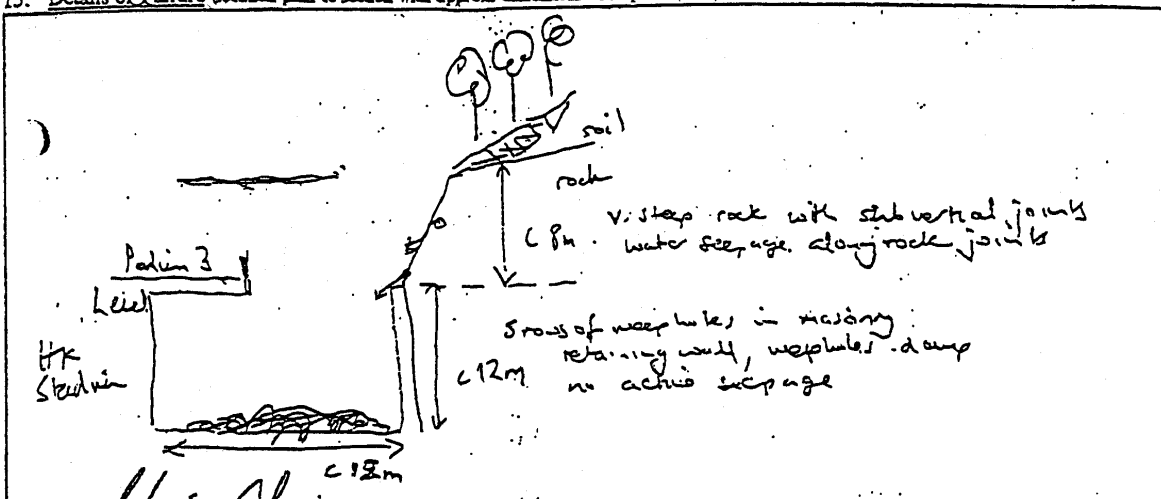 13. Details of Failure
soil
rock
c 8m. V. steep rock with subvertical joints
water seepage along rock joints
Podium 3
Level
HK
Stadium
c12m
5 rows of weepholes in masonry
retaining wall, weepholes damp
no active seepage
m